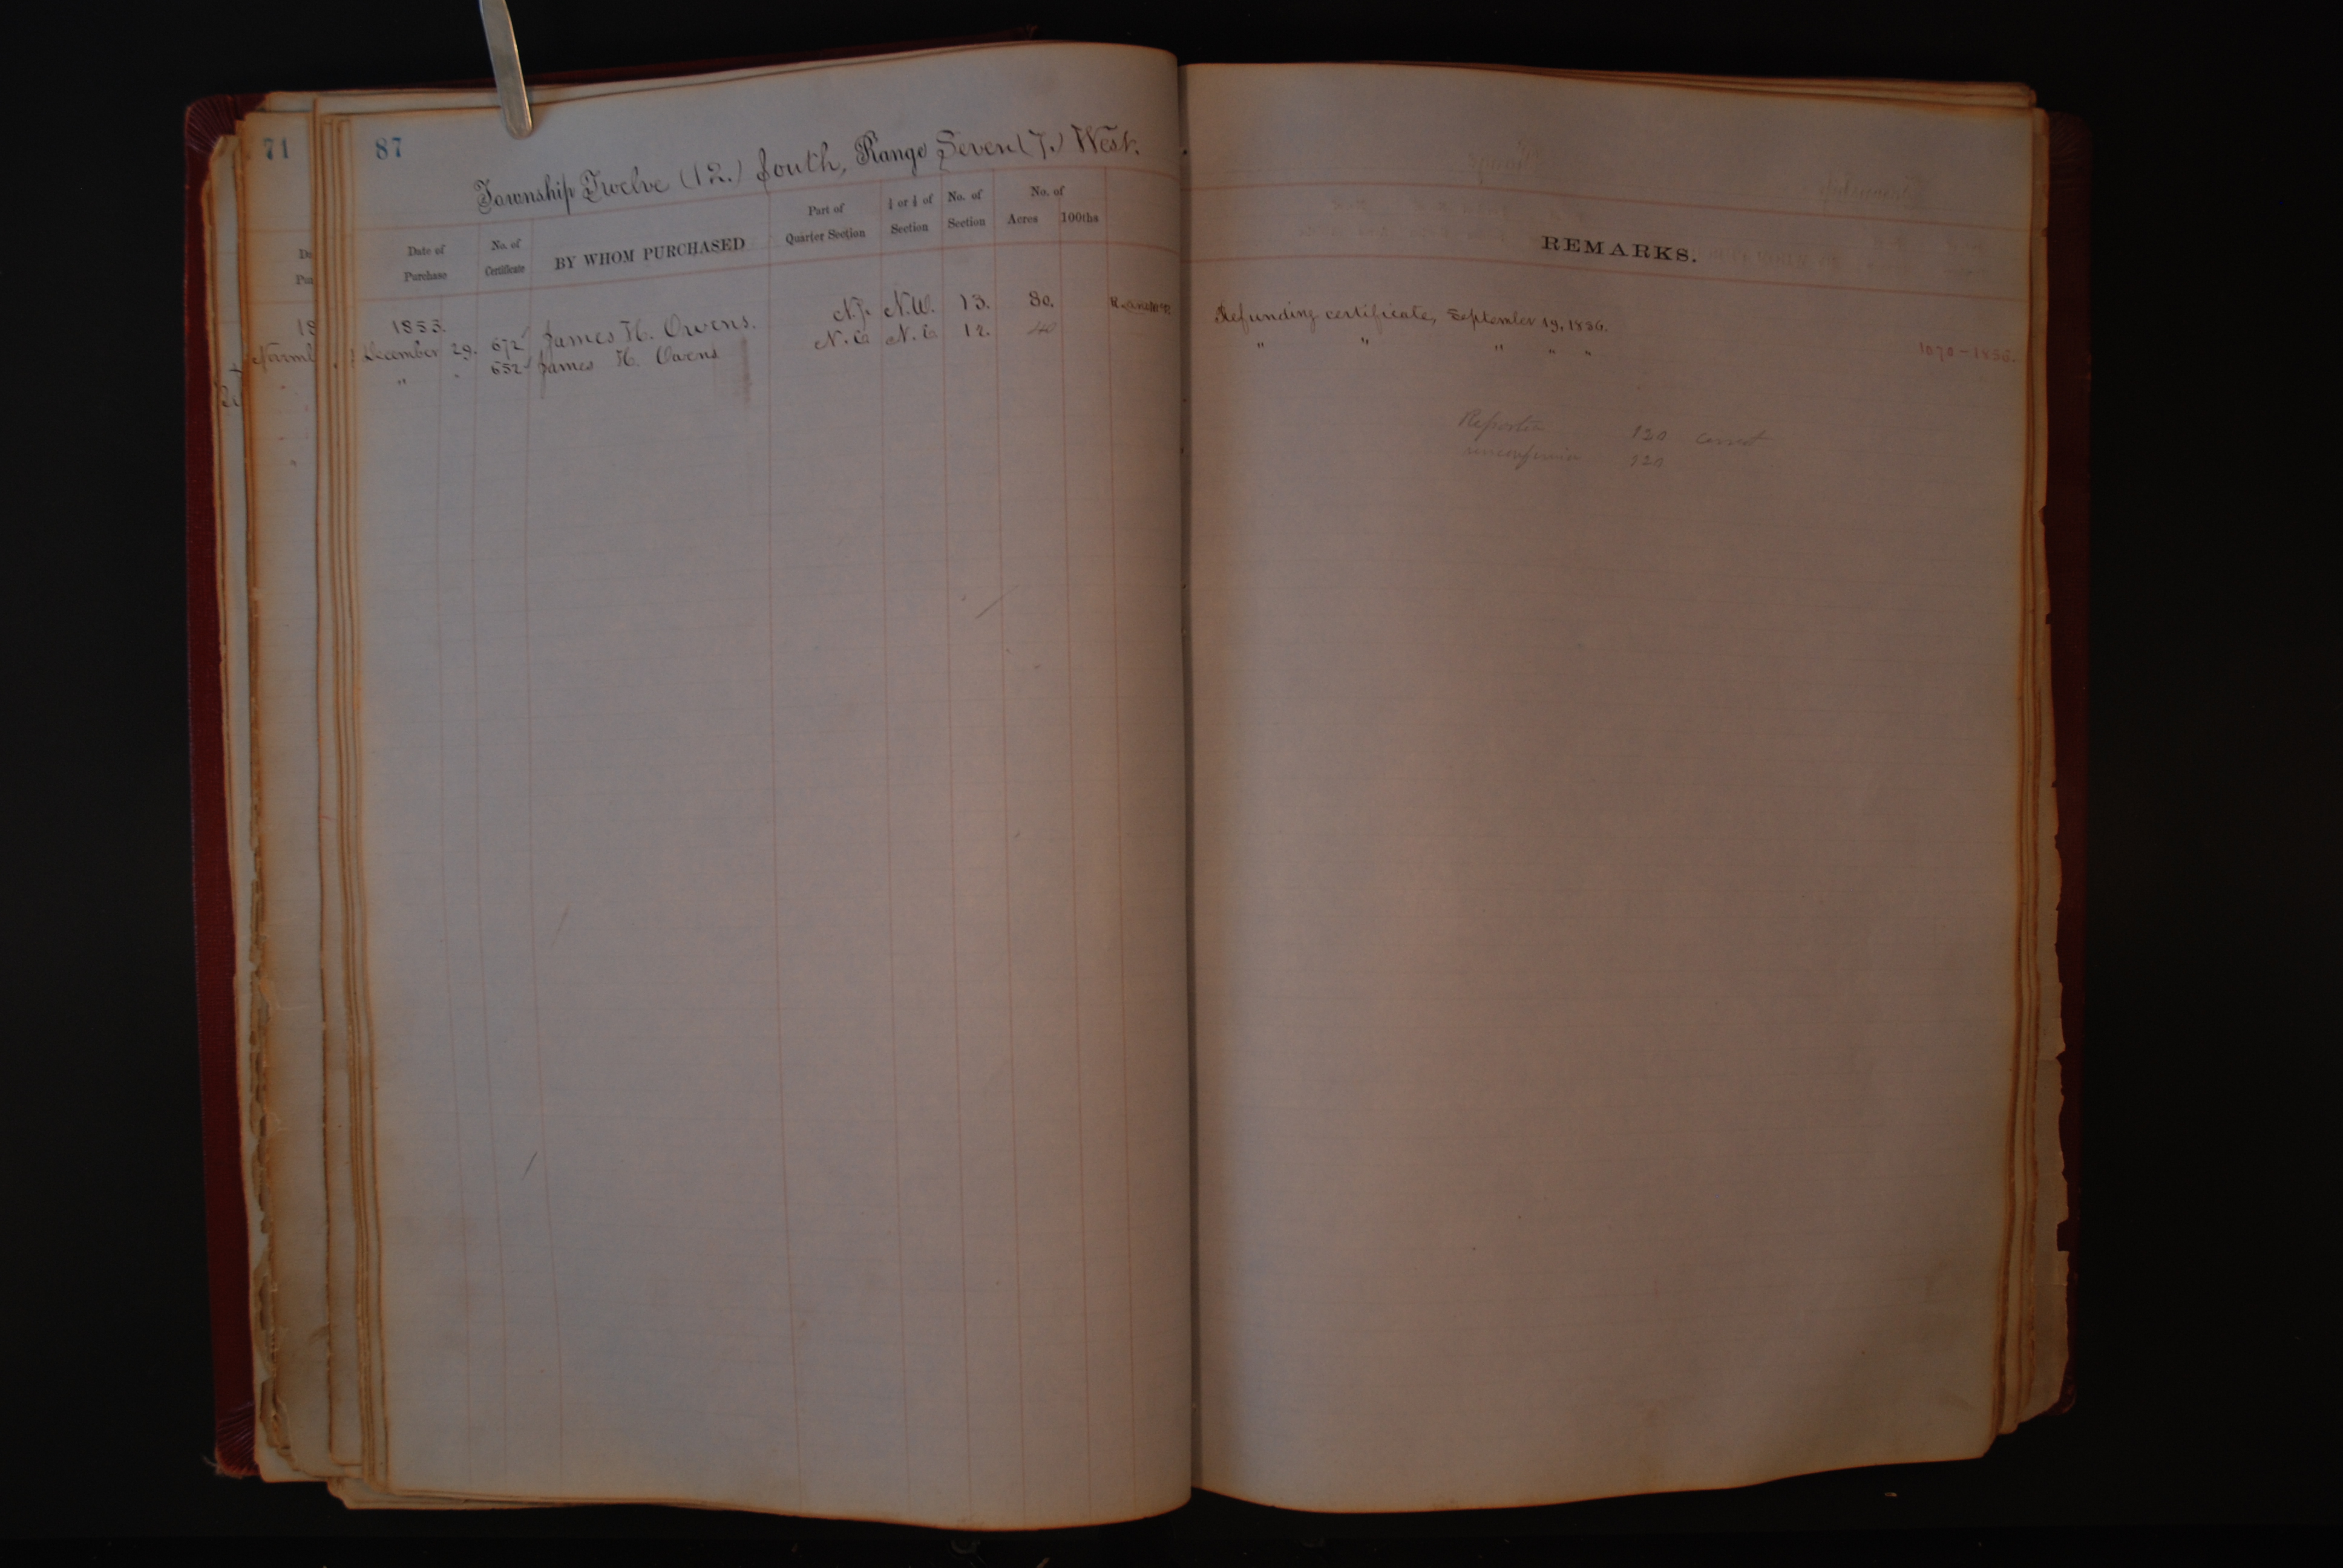 71
87
Township Twelve (12.) South, Range Seven (7.) West.
Date of Purchase
No. of Certificate
BY WHOM PURCHASED
Part of Quarter Section
½ or ¼ of Section
No. of Section
No. of
Acres
100ths
REMARKS.
1853.
December 29. 672 James H. Owens. N.½ N.W. 13. 80. Refunding certificate, September 19, 1856.
" " 652 James H. Owens N.E N.E 12. 40 " " " " "
120
120